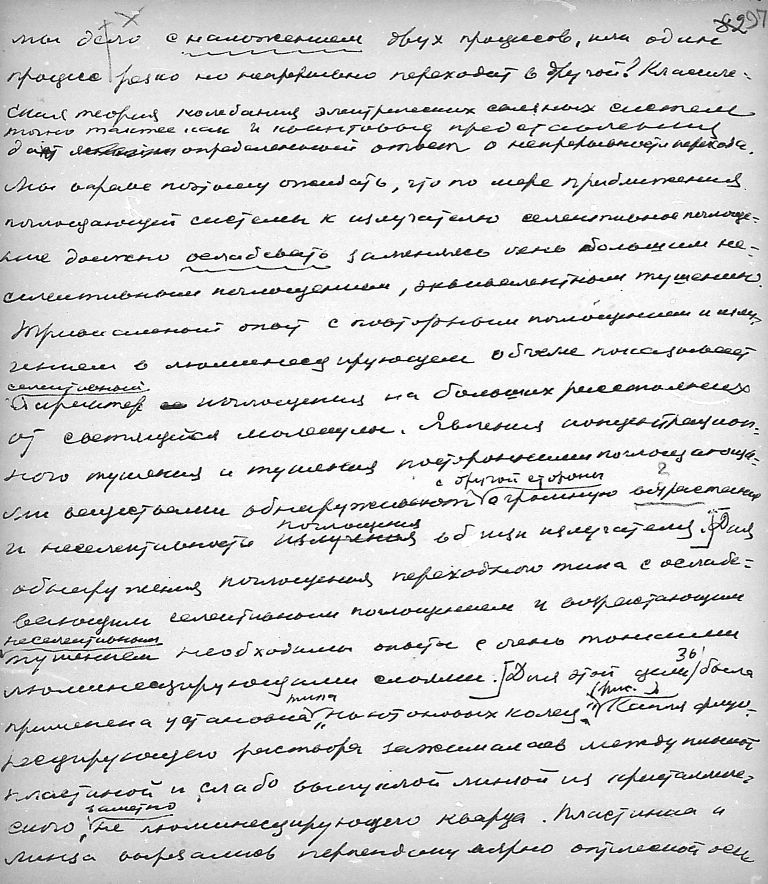 297
мы дело с наложением двух процессов, или один
процесс резко но непрерывно переходит в другой? Классиче-
ская теория колебания электрических связных систем
точно так же как и квантовые представления
дают определенный ответ о непрерывности перехода.
Мы вправе поэтому ожидать, что по мере приближения
поглощающей системы к излучателю селективное поглоще-
ние должно ослабевать заменяясь очень большим не-
селективным поглощением, эквивалентным тушению.
Тривиальный опыт с повторным поглощением и излу-
чением в люминесцирующем объеме показывает
селективный
характер поглощения на больших расстояниях
от светящейся молекулы. Явления концентрацион-
ного тушения и тушения посторонними поглощающи-
с другой стороны
ми веществами обнаруживают огромную возрастание
поглощения
и неселективность излучения вблизи излучателя. Для
обнаружения поглощения переходного типа с ослабе-
вающим селективным поглощением и возрастающим
неселективным
тушением необходимы опыты с очень тонкими
люминесцирующими слоями. Для этой цели была
типа
применена установка "ньютоновых колец" Капля флуо-
ресцирующего раствора зажималась между плоской
пластиной и слабо выпуклой линзой из кристалличе-
заметно
ского, не люминесцирующего кварца. Пластинка и
линза вырезались перпендикулярно оптической оси